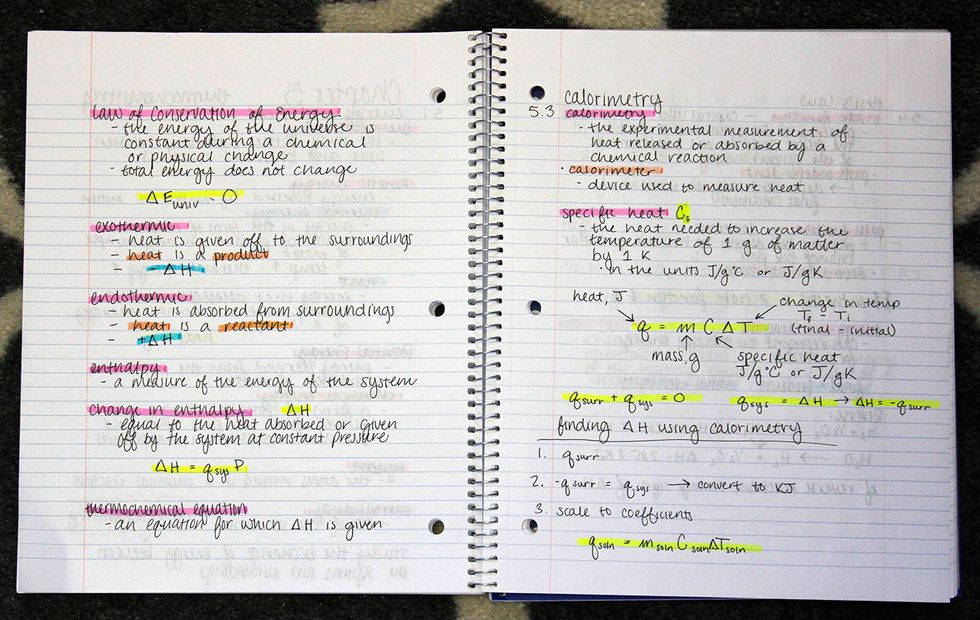 law of Conservation of Energy
- the energy of the universe is
constant during a chemical
or physical change
- total energy does not change
ΔE univ = 0
exothermic
- heat is given off to the surroundings
- heat is a product
- -ΔH
endothermic
- heat is absorbed from surroundings
- heat is a reactant
- +ΔH
enthalpy
- a measure of the energy of the system
change in enthalpy ΔH
- equal to the heat absorbed or given
off by the system at constant pressure
ΔH = q sys P
thermochemical equation
- an equation for which ΔH is given
calorimetry
5.3 calorimetry
- the experimental measurement of
heat released or absorbed by a
chemical reaction
· calorimeter
- device used to measure heat
specific heat Cs
- the heat needed to increase the
temperature of 1 g of matter
by 1 K
· in the units J/g°C or J/gK
heat, J
change in temp
Tf - Ti
(final - initial)
q = m C Δ T
mass, g
specific heat
J/g°C or J/gK
qsurr + qsys = 0
qsys = ΔH → ΔH = -qsurr
finding ΔH using calorimetry
1. qsurr
2. -qsurr = qsys → convert to KJ
3. scale to coefficients
qsoln = msoln Csoln ΔTsoln